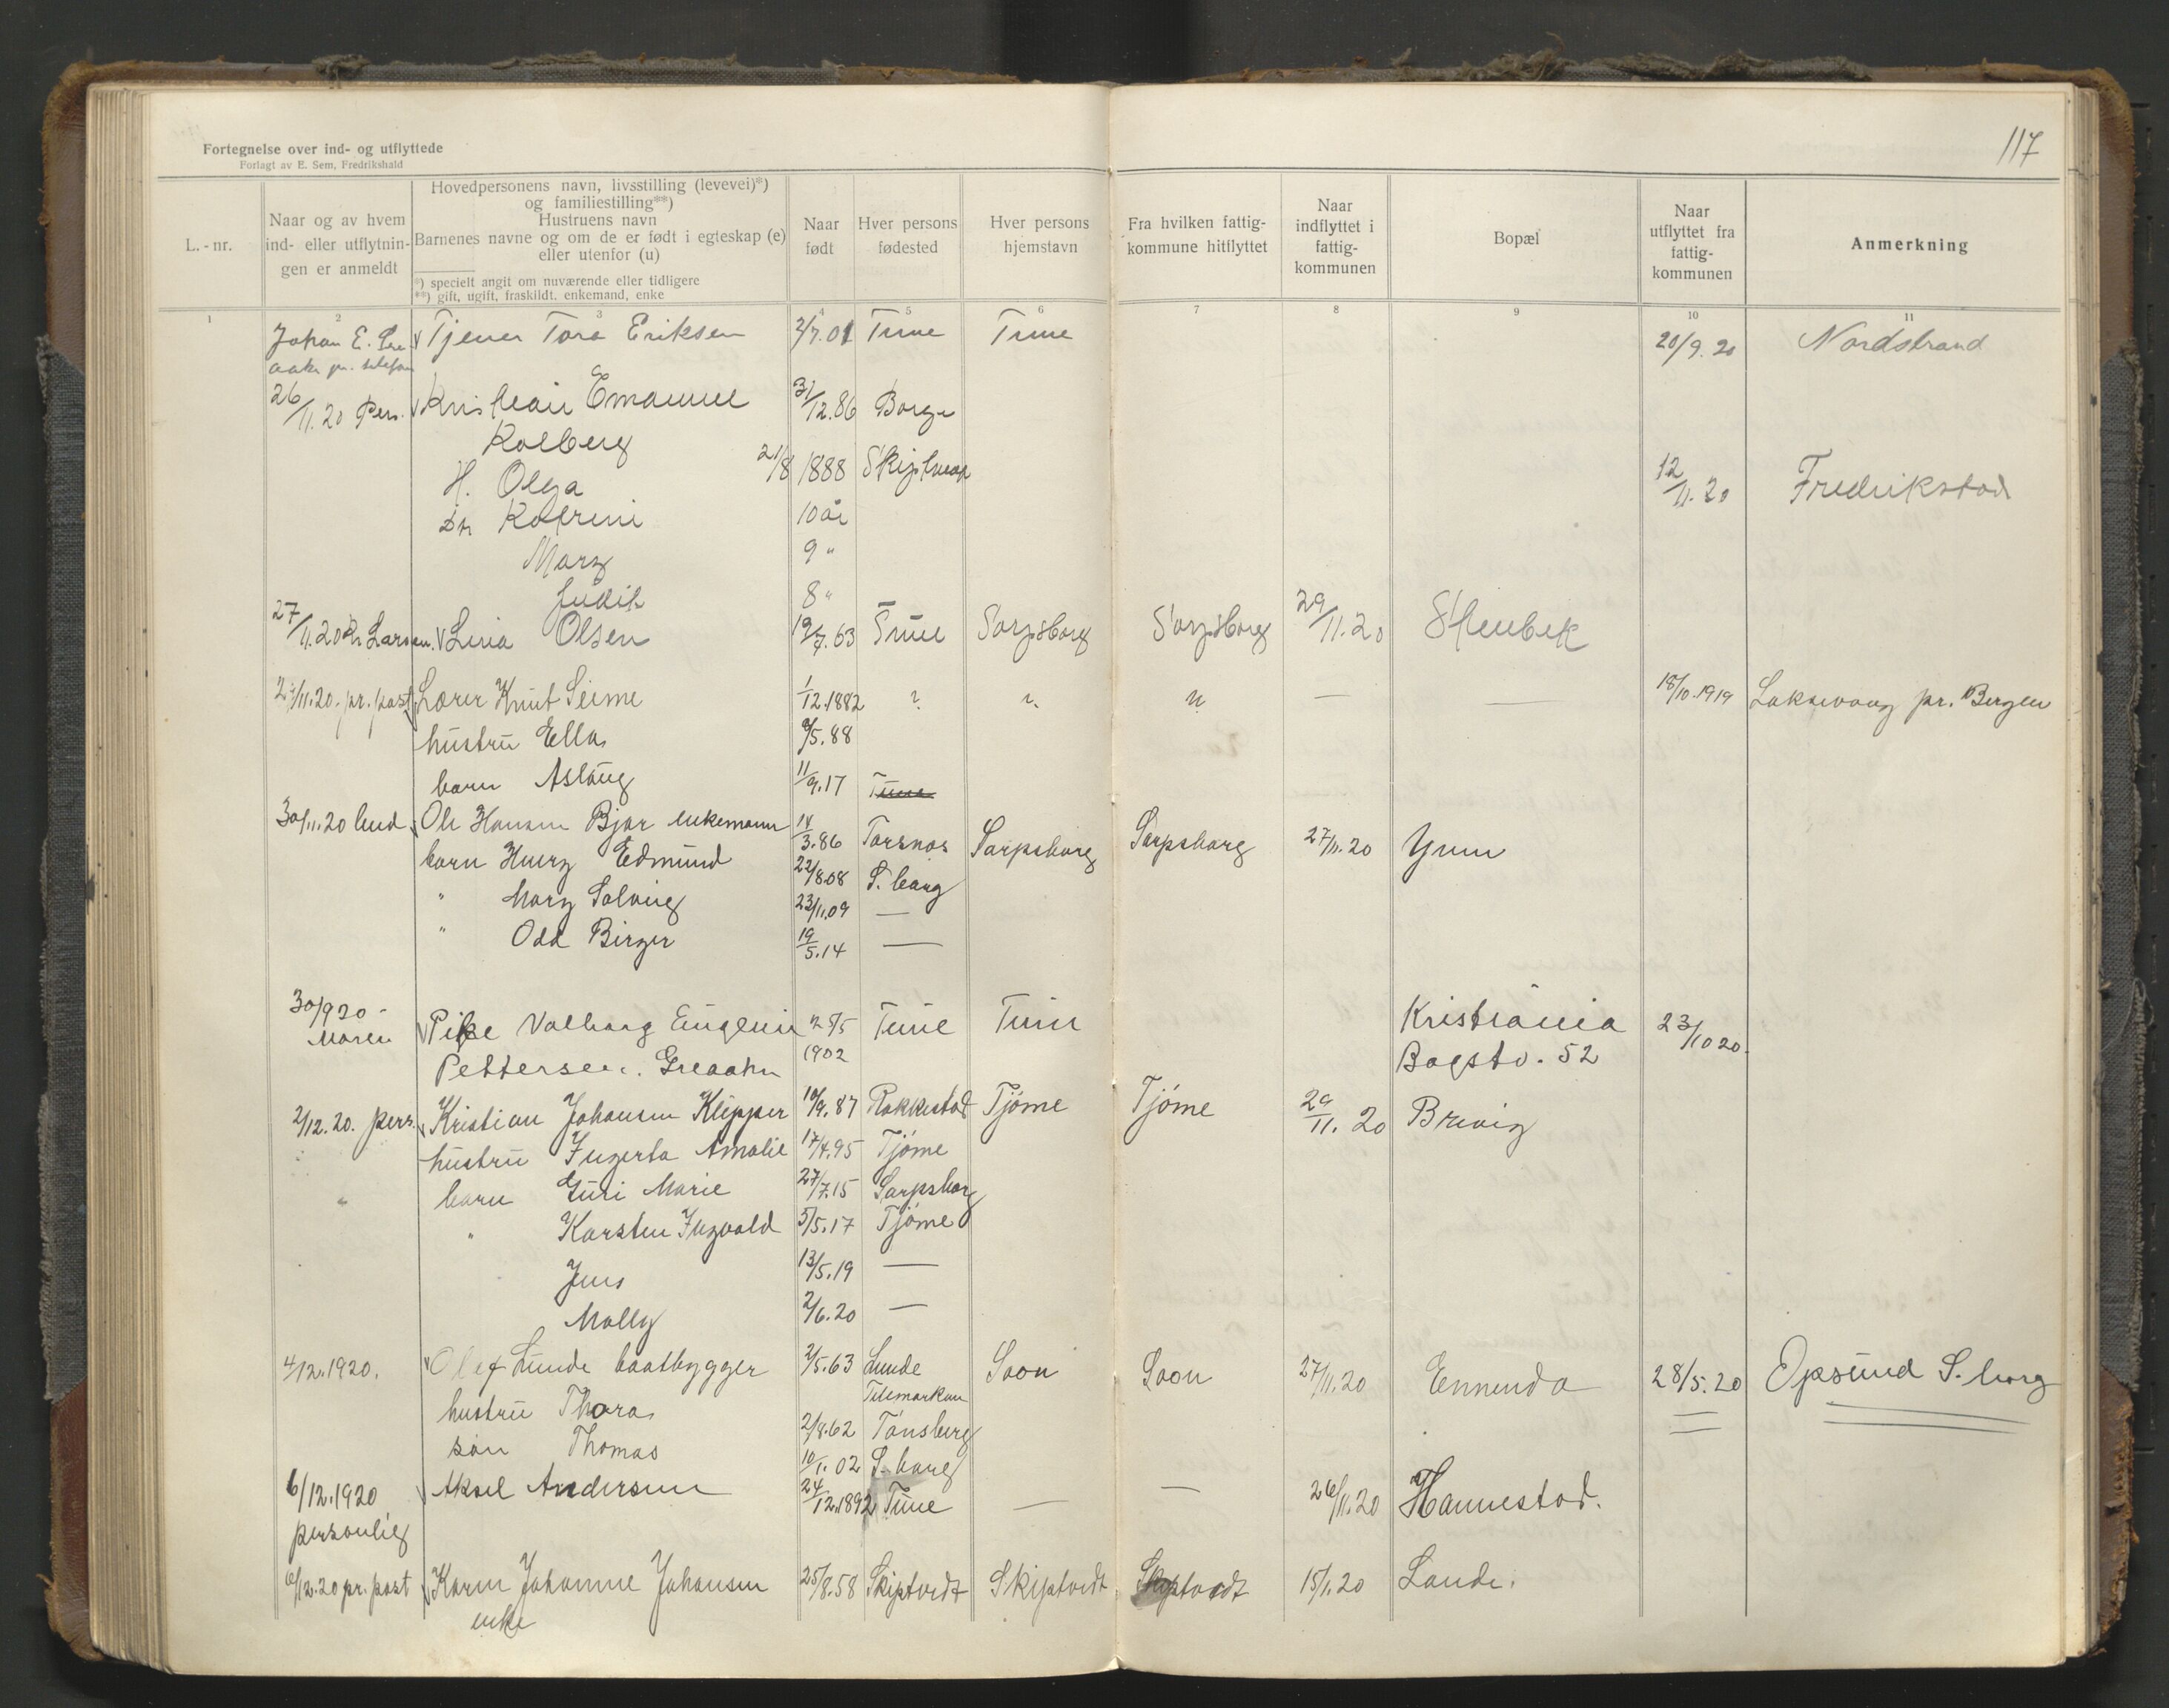 117
Fortegnelse over ind- og utflyttede
Forlagt av E. Sem, Fredrikshald
L.-nr.
Naar og av hvem
ind- eller utflytnin-
gen er anmeldt
Hovedpersonens navn, livsstilling (levevei)*)
og familiestilling**)
Hustruens navn
Barnenes navne og om de er født i egteskap (e)
eller utenfor (u)
*) specielt angit om nuværende eller tidligere
**) gift, ugift, fraskildt, enkemand, enke
Naar
født
Hver persons
fødested
Hver persons
hjemstavn
Fra hvilken fattig-
kommune hitflyttet
Naar
indflyttet i
fattig-
kommunen
Bopæl
Naar
utflyttet fra
fattig-
kommunen
Anmerkning
1 2 3 4 5 6 7 8 9 10 11
Johan E. Tjener Tora Eriksen 2/7.01 Tune Tune 20/9.20 Nordstrand
pr. telefon
26/11.20 Pers. Kristian Emanuel 31/12.86 Borge
Kolberg
H. Olga 21/8 1888 Skiptvedt 12/11.20 Fredrikstad
Dtr Katrine 10 år
Mary 9 "
Judik 8 "
27/11.20 Larsen. Lina Olsen 19/7.63 Tune Sarpsborg Sarpsborg 29/11.20 Stenbek
/11.20. pr. post Lærer Knut Seime 1/12.1882 ? 18/10.1919 Laksevaag pr. Bergen
hustru Ella 9/5.88
barn Aslaug 11/9.17 Tune
30/11.20 bud. Ole Hansen Bjar enkemann 14/3.86 Torsnes Sarpsborg Sarpsborg 27/11.20 Yven
barn Henry Edmund 22/8.08 S.borg
" Mary Solveig 23/11.09 —
" Odd Birger 19/5.14 —
30/9 20 -
Moren Pike Valborg Eugenie 27/5 Tune Tune Kristiania 23/10 20.
Pettersen. Greaaker 1902 Bogstv. 52
2/12.20. pers. Kristian Johansen Klipper 10/9.87 Rakkestad Tjöme Tjöme 29/11.20 Brevig
hustru Ingerta Amalie 17/4.95 Tjöme
" barn Guri Marie 27/7.15 Sarpsborg
" Karsten Ingvald 5/5.17 Tjöme
Jens 13/5.19 —
Molly 2/6.20 —
4/12.1920. Olef Lunde baatbygger 2/5.63 Lunde Soon Soon 27/11.20 Ennenda 28/5.20 Opsund S.borg
Telemarken
hustru Thora 2/8.62 Tönsberg
søn Thomas 10/1.02 S.borg
6/12.1920 Aksel Andersen 24/12.1892 Tune — — 26/11.20 Hannestad.
personlig
6/12.20 pr. post Karen Johanne Johansen 25/8.58 Skiptvedt Skiptvedt Skiptvedt 15/1.20 Lande.
enke